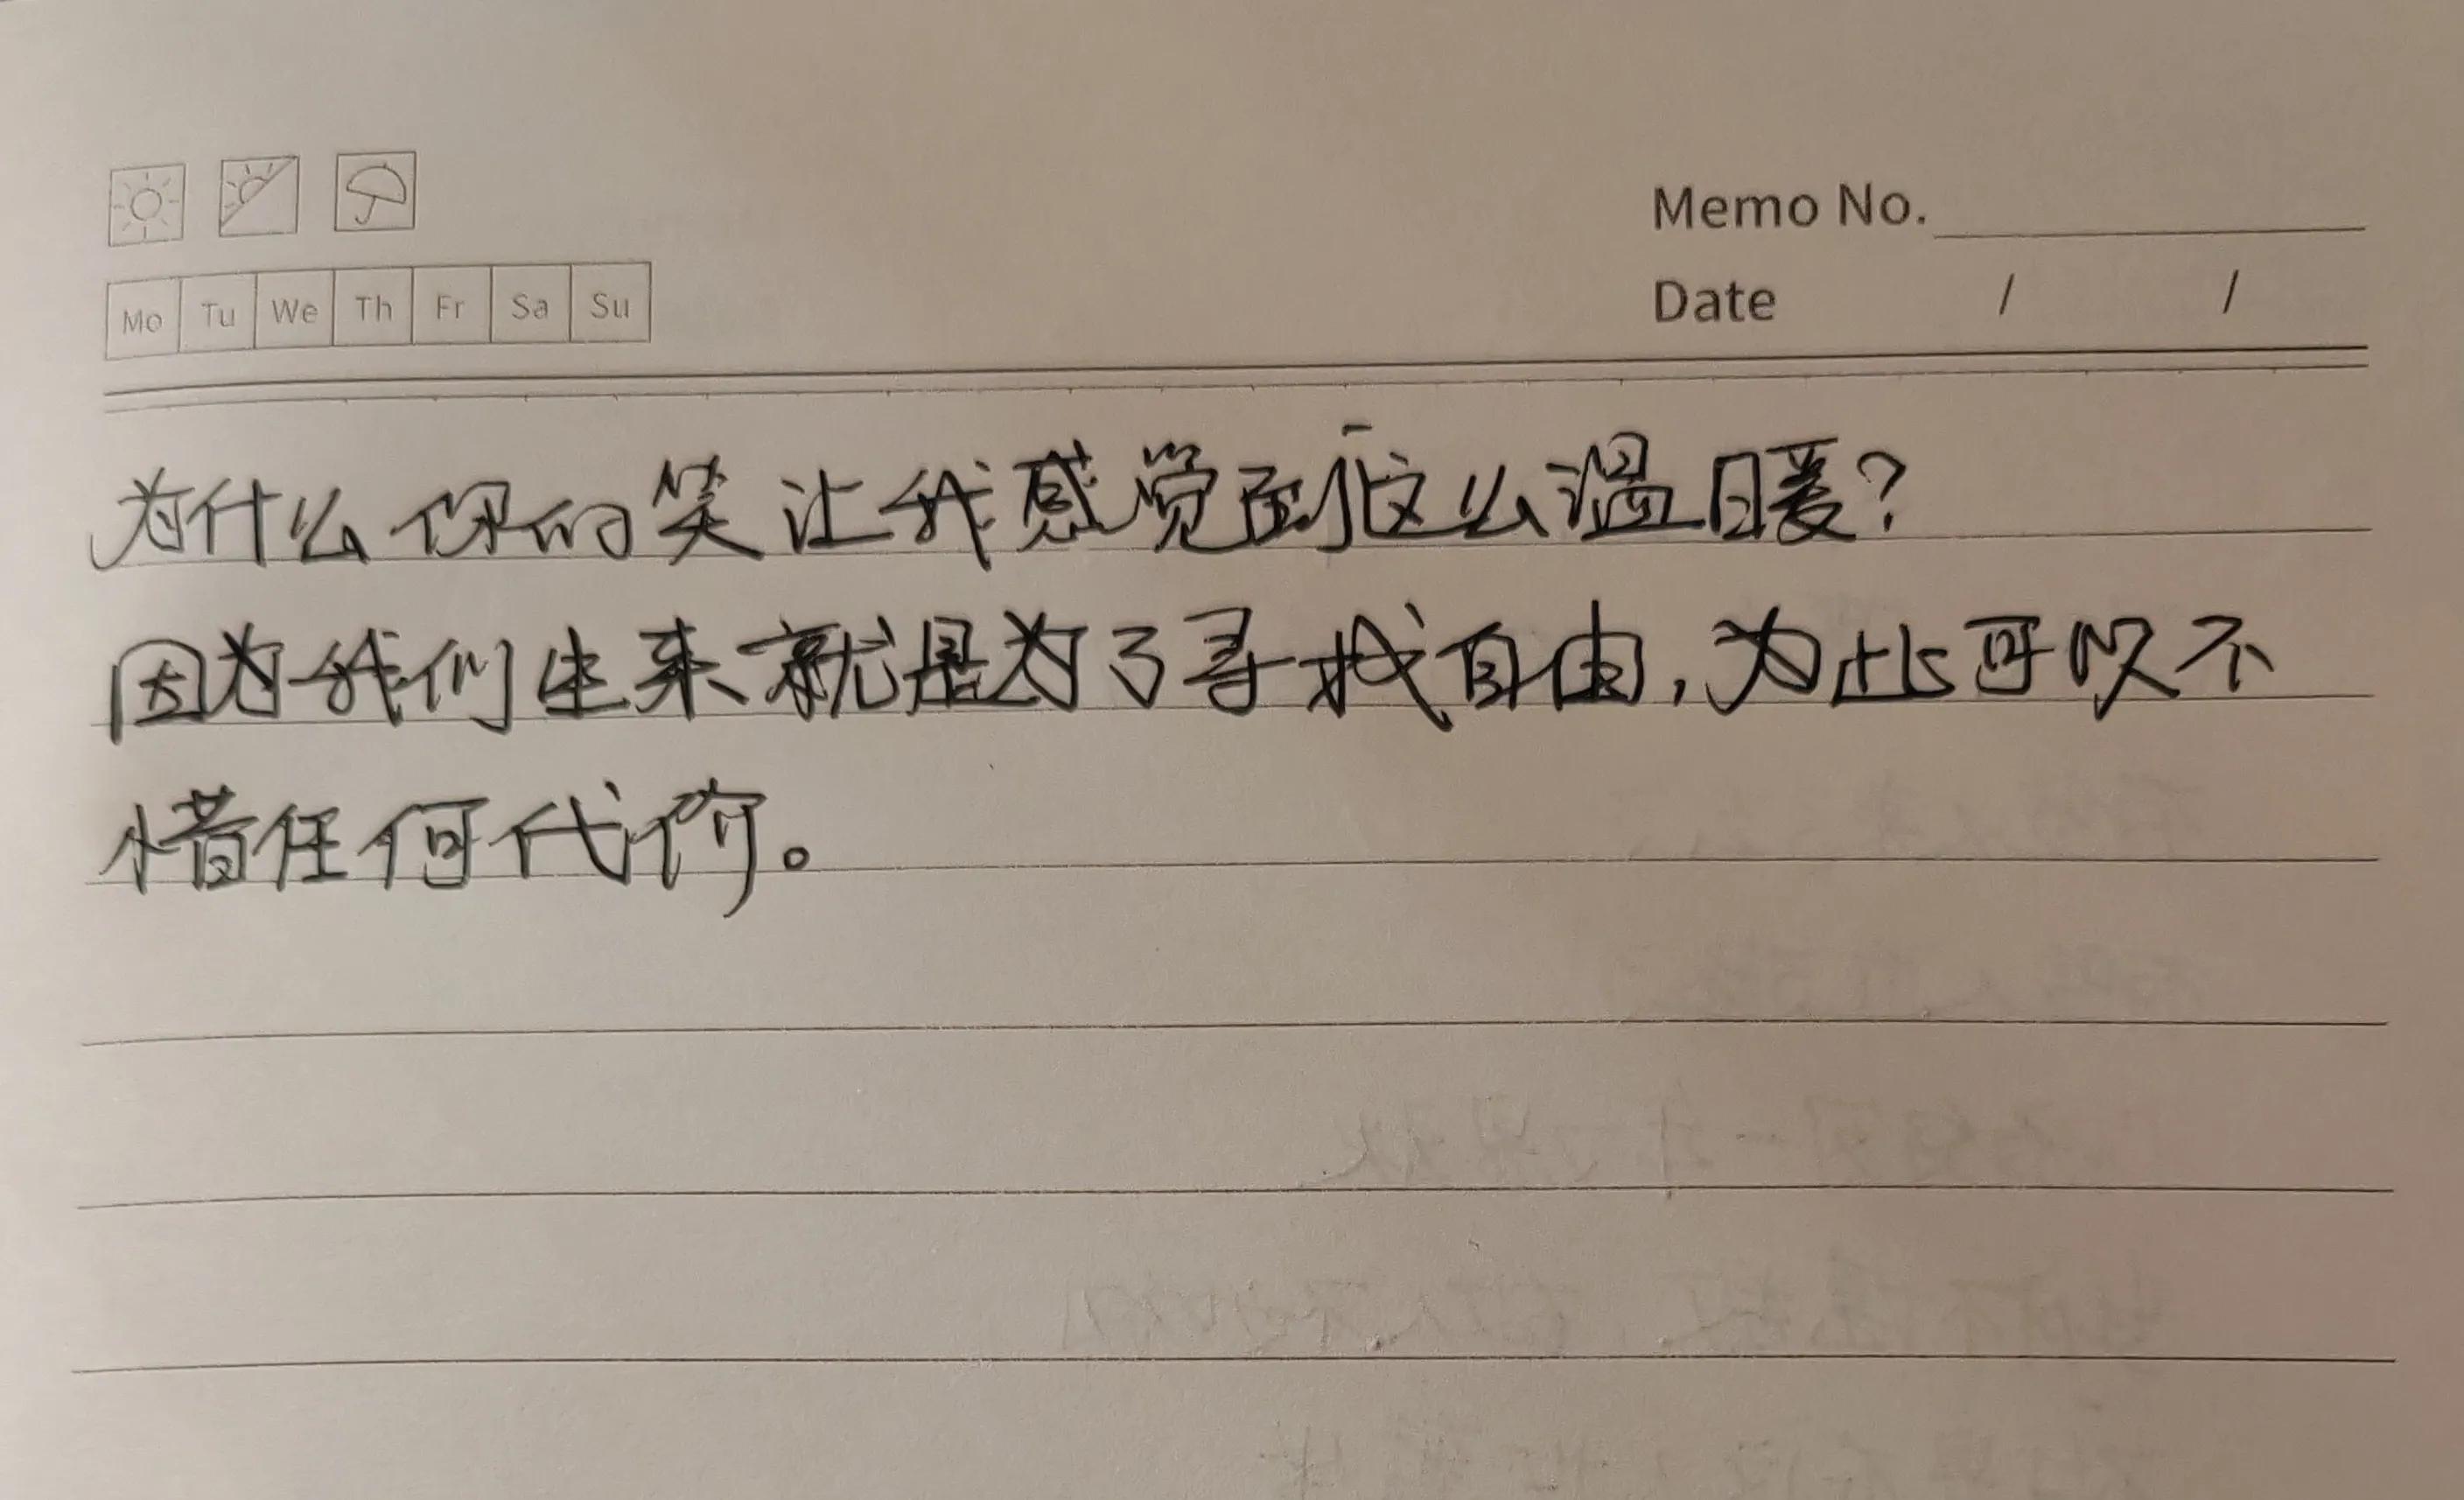 Memo No.
Mo Tu We Th Fr Sa Su
Date / /
为什么你的笑让我感觉到这么温暖?
因为我们生来就是为了寻找自由,为此可以不
惜任何代价。